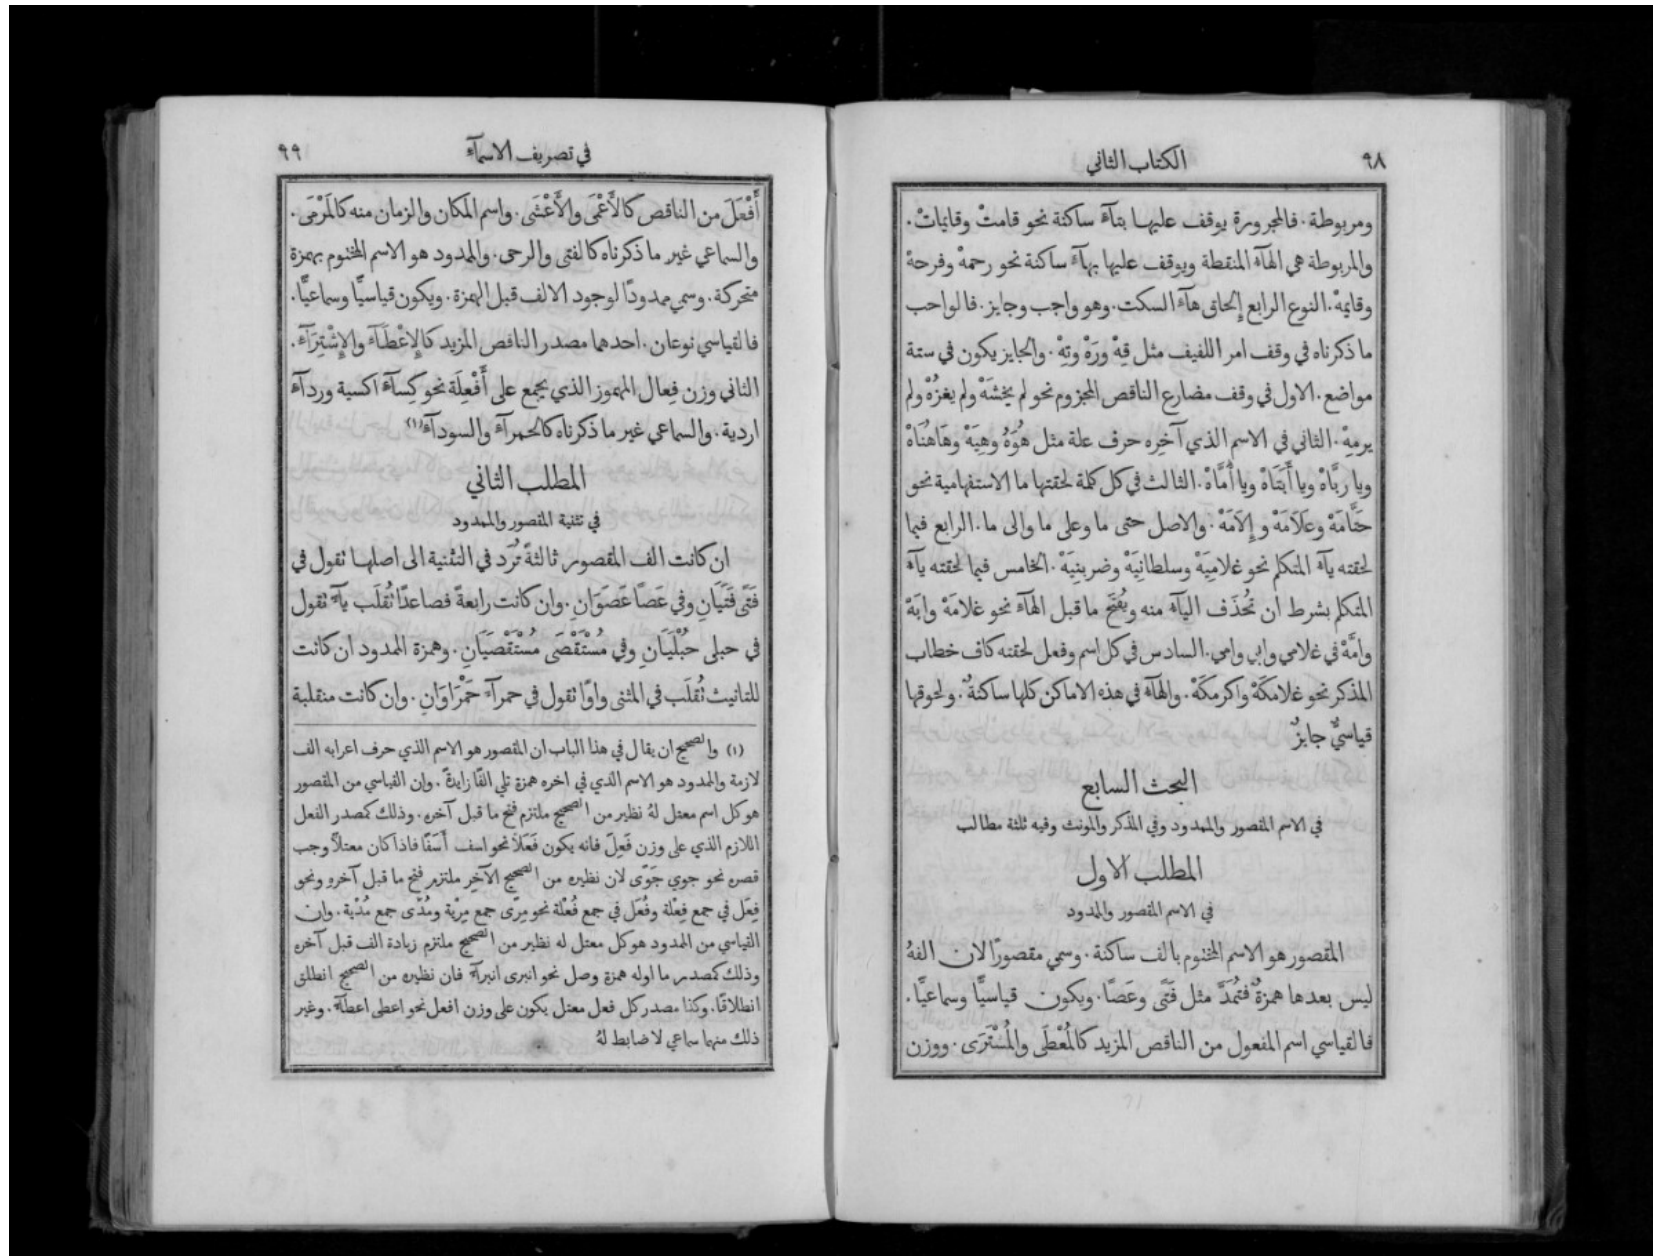 ٩٨
الكتاب الثاني
ومربوطة. فالمجرورة يوقف عليها بتآء ساكنة نحو قامتْ وقايماتْ.
والمربوطة هي الهآء المنقطة ويوقف عليها بهآء ساكنة نحو رحمهْ وفرحهْ
وقايمهْ. النوع الرابع إلحاق هآء السكت. وهو واجب وجايز. فالواجب
ما ذكرناه في وقف امر اللفيف مثل قِهْ ورَهْ وتِهْ. والجايز يكون في ستة
مواضع. الاول في وقف مضارع الناقص المجزوم نحو لم يخشَهْ ولم يغزُهْ ولم
يرمِهْ. الثاني في الاسم الذي آخِره حرف علة مثل هُوَهْ وهِيَهْ وهَاهُنَاهْ
ويا ربَّاهْ ويا أَبَتَاهْ ويا أُمَّاهْ. الثالث في كل كلمة لحقتها ما الاستفهامية نحو
حَتَّامَهْ وعَلَامَهْ وإِلَامَهْ. والاصل حتى ما وعلى ما والى ما. الرابع فيما
لحقته يآء المتكلم نحو غلامِيَهْ وسلطانِيَهْ وضربنِيَهْ. الخامس فيما لحقته يآء
المتكلم بشرط ان تُحذَف اليآء منه ويُفتَح ما قبل الهآء نحو غلامَهْ وابَهْ
وامَّهْ في غلامي وابي وامي. السادس في كل اسم وفعل لحقته كاف خطاب
المذكر نحو غلامكَهْ واكرمكَهْ. والهآء في هذه الاماكن كلها ساكنةٌ. ولحوقها
قياسيٌّ جايزٌ
البحث السابع
في الاسم المقصور والممدود وفي المذكر والمونث وفيه ثلثة مطالب
المطلب الاول
في الاسم المقصور والمدود
المقصور هو الاسم المختوم بالف ساكنة. وسمي مقصورًا لان الفهُ
ليس بعدها همزةٌ فتُمَدَّ مثل فَتًى وعَصًا. ويكون قياسيًّا وسماعيًّا.
فالقياسي اسم المفعول من الناقص المزيد كالمُعْطَى والمُشْتَرَى. ووزن
في تصريف الاسمآء
٩٩
أَفْعَلَ من الناقص كالأَعْمَى والأَعْشَى. واسم المكان والزمان منه كالمَرْمَى.
والسماعي غير ما ذكرناه كالفتى والرحى. والممدود هو الاسم المختوم بهمزة
متحركة. وسمي ممدودًا لوجود الالف قبل الهمزة. ويكون قياسيًّا وسماعيًّا.
فالقياسي نوعان. احدهما مصدر الناقص المزيد كالإِعْطَآء والإِشْتِرَآء.
الثاني وزن فِعال المهموز الذي يجمع على أَفْعِلَة نحو كِسآء اكسية وردآء
اردية. والسماعي غير ما ذكرناه كالحمرآء والسودآء(١)
المطلب الثاني
في تثنية المقصور والممدود
ان كانت الف المقصور ثالثةً تُرَد في التثنية الى اصلها تقول في
فَتًى فَتَيَانِ وفي عَصًا عَصَوَانِ. وان كانت رابعةً فصاعدًا تُقلَب يآءً تقول
في حبلى حُبْلَيَانِ وفي مُسْتَقْصَى مُسْتَقْصَيَانِ. وهمزة الممدود ان كانت
للتانيث تُقلَب في المثنى واوًا تقول في حمرآء حَمْرَاوَانِ. وان كانت منقلبة
(١) والصحيح ان يقال في هذا الباب ان المقصور هو الاسم الذي حرف اعرابه الف
لازمة والممدود هو الاسم الذي في اخره همزة تلي الفًا زايدةً. وان القياسي من المقصور
هو كل اسم معتل لهُ نظير من الصحيح ملتزم فتح ما قبل آخره. وذلك كمصدر الفعل
اللازم الذي على وزن فَعِلَ فانه يكون فَعَلًا نحو اسف أَسَفًا فاذا كان معتلًّا وجب
قصره نحو جوي جَوًى لان نظيره من الصحيح الآخِر ملتزم فتح ما قبل آخره ونحو
فِعَل في جمع فِعْلة وفُعَل في جمع فُعْلة نحو مِرًى جمع مِرْية ومُدًى جمع مُدْية. وان
القياسي من الممدود هو كل معتل له نظير من الصحيح ملتزم زيادة الف قبل آخره
وذلك كمصدر ما اوله همزة وصل نحو انبرى انبرآء فان نظيره من الصحيح انطلق
انطلاقًا. وكذا مصدر كل فعل معتل يكون على وزن افعل نحو اعطى اعطآء. وغير
ذلك منهما سماعي لا ضابط لهُ